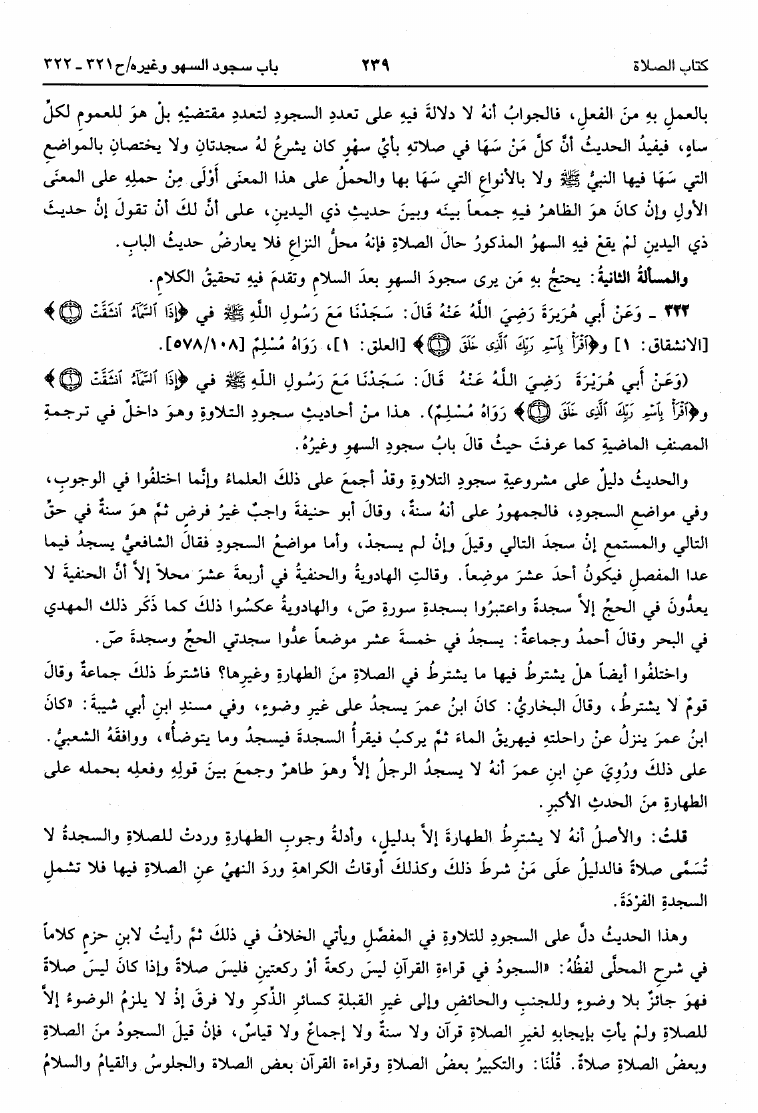 كتاب الصلاة ٢٣٩ باب سجود السهو وغيره/ح٣٢١ ـ ٣٢٢
بالعملِ بهِ منَ الفعلِ، فالجوابُ أنهُ لا دلالةَ فيهِ على تعددِ السجودِ لتعددِ مقتضيْهِ بلْ هوَ للعمومِ لكلِّ
ساهٍ، فيفيدُ الحديثُ أنَّ كلَّ مَنْ سَهَا في صلاتهِ بأيِّ سهْوٍ كان يشرعُ لهُ سجدتانِ ولا يختصانِ بالمواضعِ
التي سَهَا فيها النبيُّ ﷺ ولا بالأنواعِ التي سَهَا بها والحملُ على هذا المعنَى أَوْلَى مِنْ حملِهِ على المعنَى
الأولِ وإنْ كانَ هوَ الظاهرُ فيهِ جمعاً بينَه وبينَ حديثِ ذي اليدينِ، على أنَّ لكَ أنْ تقولَ إنْ حديثَ
ذي اليدينِ لمْ يقعْ فيهِ السهوُ المذكورُ حالَ الصلاةِ فإنهُ محلُّ النزاعِ فلا يعارضُ حديثُ البابِ.
والمسألةُ الثانيةُ: يحتجُّ بهِ مَن يرى سجودَ السهوِ بعدَ السلامِ وتقدمَ فيهِ تحقيقُ الكلامِ.
٣٢٢ ـ وَعَنْ أَبي هُرَيْرَةَ رَضِيَ اللَّهُ عَنْهُ قَالَ: سَجَدْنَا مَعَ رَسُولِ اللَّهِ ﷺ في ﴿إِذَا ٱلسَّمَآءُ ٱنشَقَّتْ ۝١﴾
[الانشقاق: ١] و﴿ٱقْرَأْ بِٱسْمِ رَبِّكَ ٱلَّذِى خَلَقَ ۝١﴾ [العلق: ١]، رَوَاهُ مُسْلِمٌ [٥٧٨/١٠٨].
(وَعَنْ أَبي هُرَيْرَةَ رَضِيَ اللَّهُ عَنْهُ قَالَ: سَجَدْنَا مَعَ رَسُولِ اللَّهِ ﷺ في ﴿إِذَا ٱلسَّمَآءُ ٱنشَقَّتْ ۝١﴾
و﴿ٱقْرَأْ بِٱسْمِ رَبِّكَ ٱلَّذِى خَلَقَ ۝١﴾ رَوَاهُ مُسْلِمٌ). هذا منْ أحاديثِ سجودِ التلاوةِ وهوَ داخلٌ في ترجمةِ
المصنفِ الماضيةِ كما عرفتَ حيثُ قالَ بابُ سجودِ السهوِ وغيرُهُ.
والحديثُ دليلٌ على مشروعيةِ سجودِ التلاوةِ وقدْ أجمعَ على ذلكَ العلماءُ وإنَّما اختلفُوا في الوجوبِ،
وفي مواضعِ السجودِ، فالجمهورُ على أنهُ سنةٌ، وقالَ أبو حنيفةَ واجبٌ غيرُ فرضٍ ثمَّ هوَ سنةٌ في حقِّ
التالي والمستمعِ إنْ سجدَ التالي وقيلَ وإنْ لم يسجدْ، وأما مواضعُ السجودِ فقالَ الشافعيُّ يسجدُ فيما
عدا المفصلِ فيكونُ أحدَ عشرَ موضِعاً. وقالتِ الهادويةُ والحنفيةُ في أربعةَ عشرَ محلاً إلاَّ أنَّ الحنفيةَ لا
يعدُّونَ في الحجِّ إلاَّ سجدةً واعتبرُوا بسجدةِ سورةِ صَ، والهادويةُ عكسُوا ذلكَ كما ذَكَر ذلك المهدي
في البحرِ وقالَ أحمدُ وجماعةٌ: يسجدُ في خمسةَ عشر موضعاً عدُّوا سجدتي الحجِّ وسجدةَ صَ.
واختلفُوا أيضاً هلْ يشترطُ فيها ما يشترطُ في الصلاةِ منَ الطهارةِ وغيرِها؟ فاشترطَ ذلكَ جماعةٌ وقالَ
قومٌ لا يشترطُ، وقالَ البخاريُّ: كانَ ابنُ عمرَ يسجدُ على غيرِ وضوءٍ، وفي مسندِ ابنِ أبي شيبةَ: «كانَ
ابنُ عمرَ ينزلُ عنْ راحلتهِ فيهريقُ الماءَ ثمَّ يركبُ فيقرأُ السجدةَ فيسجدُ وما يتوضأُ»، ووافقَهُ الشعبيُّ.
على ذلكَ ورُوِيَ عنِ ابنِ عمرَ أنهُ لا يسجدُ الرجلُ إلاَّ وهوَ طاهرٌ وجمعَ بينَ قولِهِ وفعلِه بحمله على
الطهارةِ منَ الحدثِ الأكبرِ.
قلتُ: والأصلُ أنهُ لا يشترِطُ الطهارةَ إلاَّ بدليلٍ، وأدلةُ وجوبِ الطهارةِ وردتْ للصلاةِ والسجدةُ لا
تُسَمَّى صلاةً فالدليلُ علَى مَنْ شرطَ ذلكَ وكذلكَ أوقاتُ الكراهةِ وردَ النهيُ عنِ الصلاةِ فيها فلا تشملُ
السجدةِ الفرْدَةَ.
وهذا الحديثُ دلَّ على السجودِ للتلاوةِ في المفصَّلِ ويأتي الخلافُ في ذلكَ ثمَّ رأيتُ لابنِ حزمٍ كلاماً
في شرحِ المحلَّى لفظُهُ: «السجودُ في قراءةِ القرآنِ ليسَ ركعةً أوْ ركعتينِ فليسَ صلاةً وإذا كانَ ليسَ صلاةً
فهوَ جائزٌ بلا وضوءٍ وللجنبِ والحائضِ وإلى غيرِ القبلةِ كسائرِ الذِّكرِ ولا فرقَ إذْ لا يلزمُ الوضوءُ إلاَّ
للصلاةِ ولمْ يأتِ بإيجابِهِ لغيرِ الصلاةِ قرآن ولا سنةٌ ولا إجماعٌ ولا قياسٌ، فإنْ قيلَ السجودُ منَ الصلاةِ
وبعضُ الصلاةِ صلاةٌ. قُلْنَا: والتكبيرُ بعضُ الصلاةِ وقراءة القرآن بعض الصلاة والجلوسُ والقيامُ والسلامُ